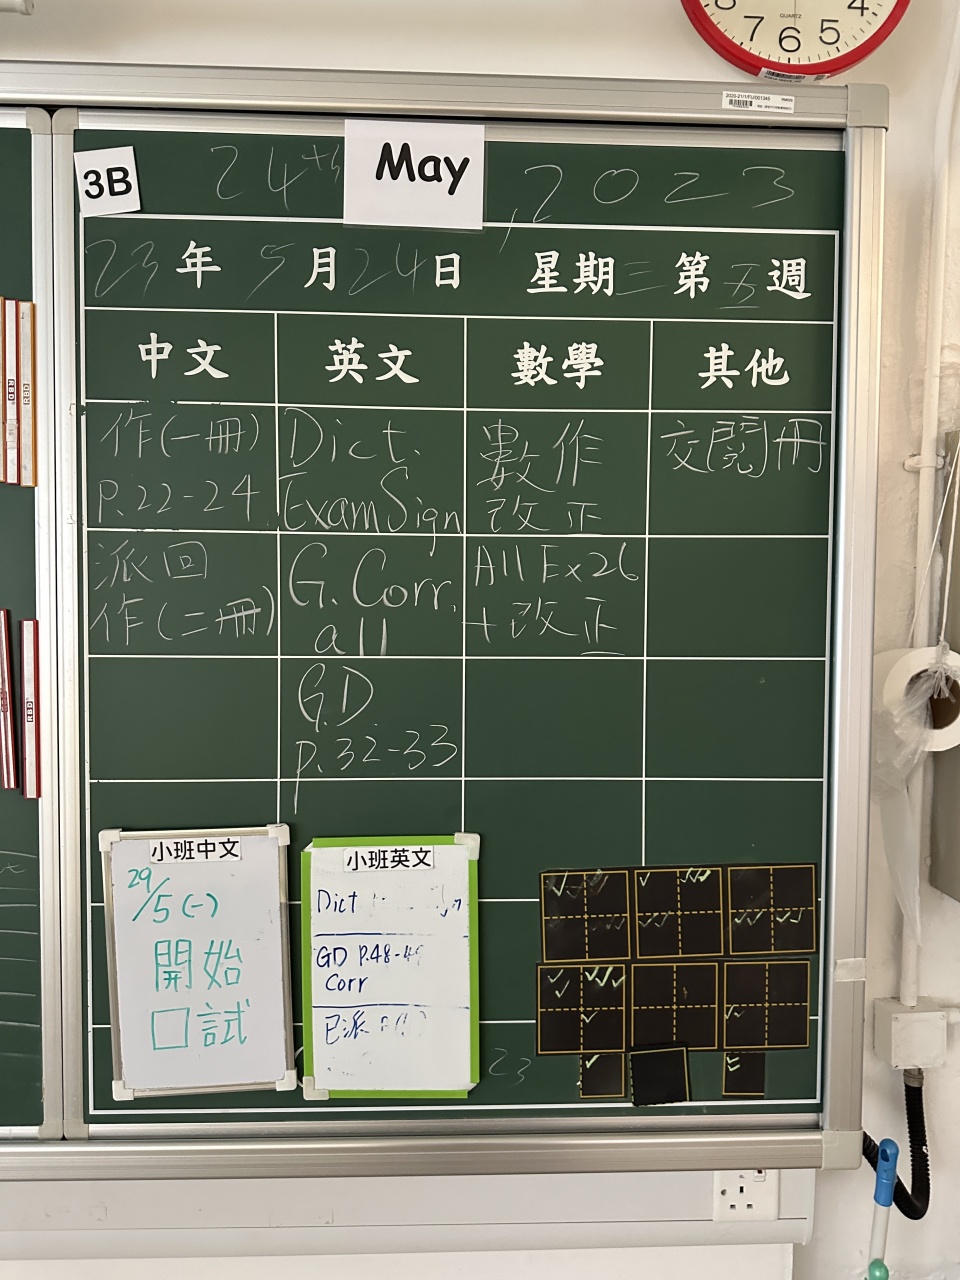 8 4
7 6 5
QUARTZ
2020-21/1/FU/001345
3B
24th May, 2023
23年5月24日 星期三 第五週
中文 英文 數學 其他
作(一冊)
P.22-24
Dict.
ExamSign
數作
改正
交閱冊
派回
作(二冊)
G. Corr.
all
All Ex26
+改正
G.D.
p.32-33
小班中文
29/5(一)
開始
口試
小班英文
Dict
GD P.48-4
Corr
已派
23